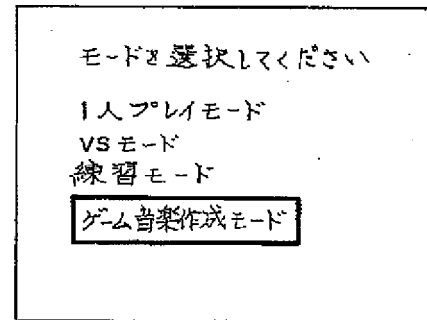 モードを選択してください
1人プレイモード
VSモード
練習モード
ゲーム音楽作成モード